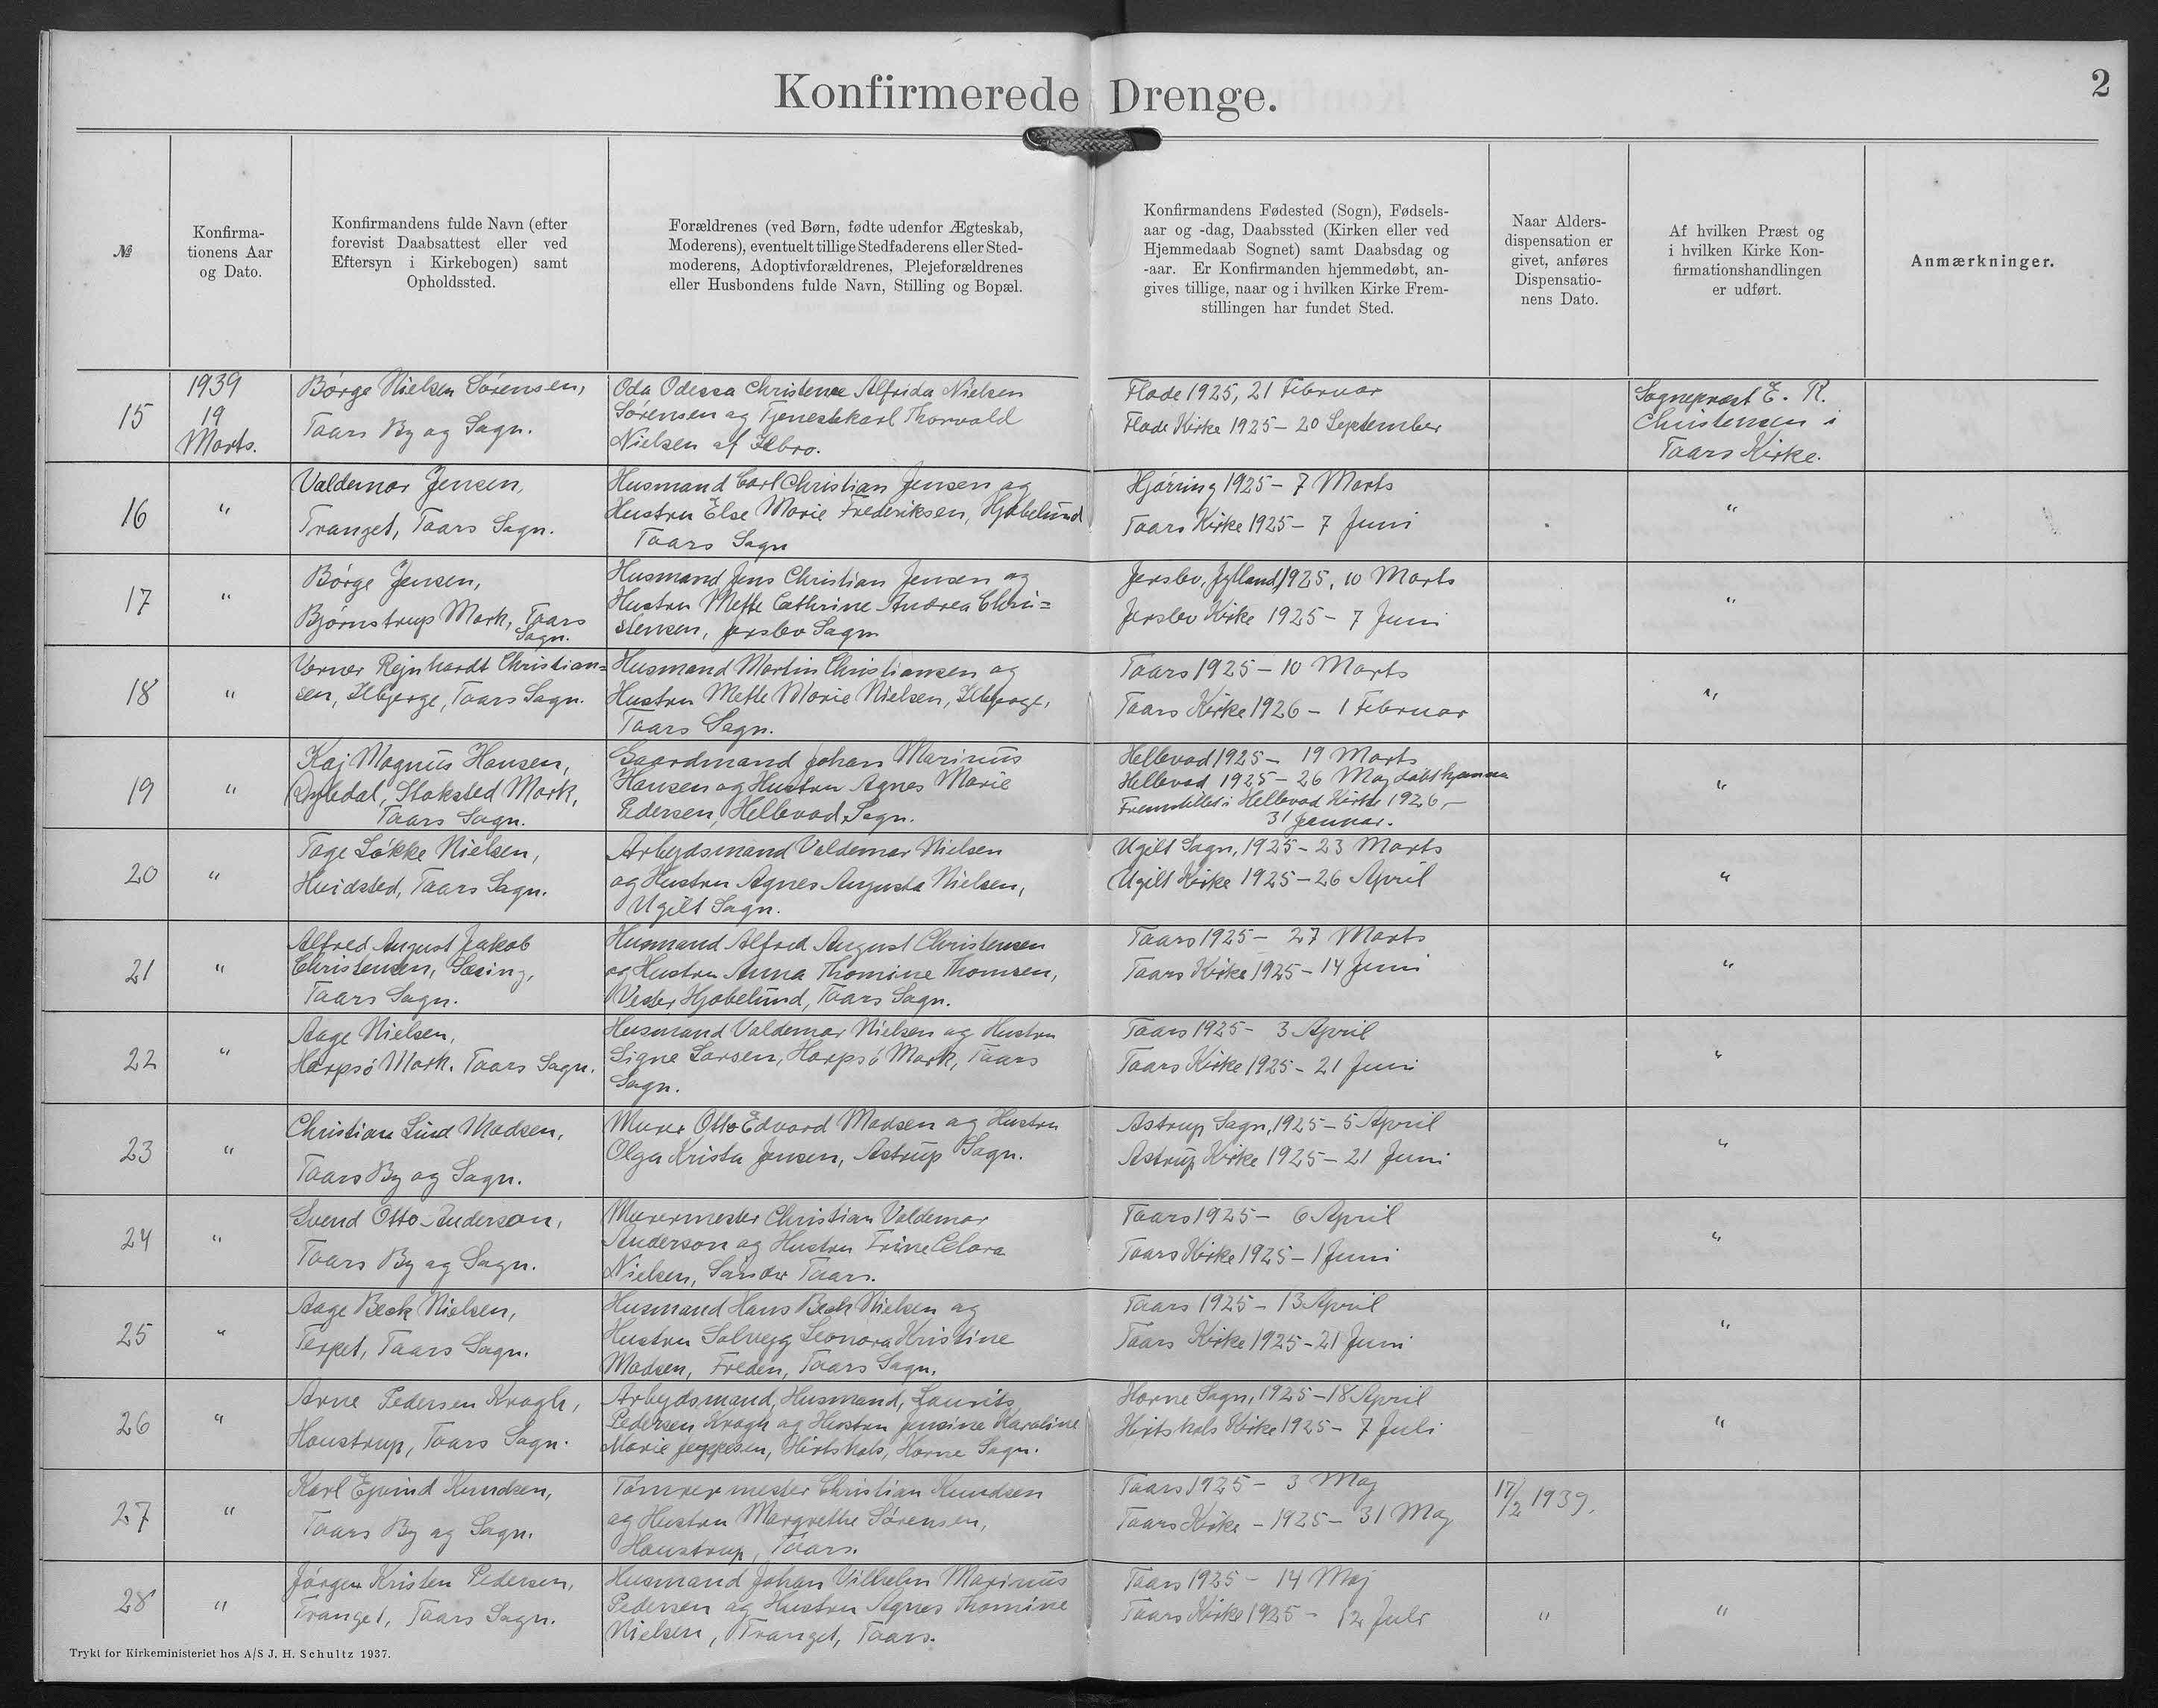 Konfirmerede Drenge.
2
№
Konfirma-
tionens Aar
og Dato.
Konfirmandens fulde Navn (efter
forevist Daabsattest eller ved
Eftersyn i Kirkebogen) samt
Opholdssted.
Forældrenes (ved Børn, fødte udenfor Ægteskab,
Moderens), eventuelt tillige Stedfaderens eller Sted-
moderens, Adoptivforældrenes, Plejeforældrenes
eller Husbondens fulde Navn, Stilling og Bopæl.
Konfirmandens Fødested (Sogn), Fødsels-
aar og -dag, Daabssted (Kirken eller ved
Hjemmedaab Sognet) samt Daabsdag og
-aar. Er Konfirmanden hjemmedøbt, an-
gives tillige, naar og i hvilken Kirke Frem-
stillingen har fundet Sted.
Naar Alders-
dispensation er
givet, anføres
Dispensatio-
nens Dato.
Af hvilken Præst og
i hvilken Kirke Kon-
firmationshandlingen
er udført.
Anmærkninger.
15
1939
19
Marts.
Börge Nielsen Sörensen,
Taars By og Sogn.
Oda Odessa Christence Alfrida Nielsen
Sörensen og Tjenestekarl Thorvald
Nielsen af Ilbro.
Flade 1925, 21 Februar
Flade Kirke 1925 - 20 September
Sognepræst E. R.
Christensen i
Taars Kirke.
16
"
Valdemar Jensen,
Tranget, Taars Sogn.
Husmand Carl Christian Jensen og
Hustru Else Marie Frederiksen, Hjobelund
Taars Sogn
Hjörring 1925 - 7 Marts
Taars Kirke 1925 - 7 Juni
"
17
"
Börge Jensen,
Björnstrup Mark, Taars
Sogn.
Husmand Jens Christian Jensen og
Hustru Mette Cathrine Andrea Chri=
stensen, Jerslev Sogn
Jerslev, Jylland, 1925, 10 Marts
Jerslev Kirke 1925 - 7 Juni
"
18
"
Verner Rejnhardt Christian=
sen, Ilbjerge, Taars Sogn.
Husmand Martin Christiansen og
Hustru Mette Marie Nielsen, Ilbjerge,
Taars Sogn.
Taars 1925 - 10 Marts
Taars Kirke 1926 - 1 Februar
"
19
"
Kaj Magnus Hansen,
Stoksted Mark,
Taars Sogn.
Gaardmand Johan Marinus
Hansen og Hustru Agnes Marie
Pedersen, Hellevad Sogn.
Hellevad 1925 - 19 Marts
Hellevad 1925 - 26 Maj döbt hjemme
Fremstillet i Hellevad Kirke 1926, -
31 Januar.
"
20
"
Tage Lökke Nielsen,
Hvidsted, Taars Sogn.
Arbejdsmand Valdemar Nielsen
og Hustru Agnes Augusta Nielsen,
Ugilt Sogn.
Ugilt Sogn, 1925 - 23 Marts
Ugilt Kirke 1925 - 26 April
"
21
"
Alfred August Jakob
Christensen, Gaing,
Taars Sogn.
Husmand Alfred August Christensen
og Hustru Anna Thomine Thomsen,
Vester Hjobelund, Taars Sogn.
Taars 1925 - 27 Marts
Taars Kirke 1925 - 14 Juni
"
22
"
Aage Nielsen,
Harpsö Mark. Taars Sogn.
Husmand Valdemar Nielsen og Hustru
Signe Larsen, Harpsö Mark, Taars
Sogn.
Taars 1925 - 3 April
Taars Kirke 1925 - 21 Juni
"
23
"
Christian Lind Madsen,
Taars By og Sogn.
Murer Otto Edvard Madsen og Hustru
Olga Krista Jensen, Astrup Sogn.
Astrup Sogn, 1925 - 5 April
Astrup Kirke 1925 - 21 Juni
"
24
"
Svend Otto Anderson,
Taars By og Sogn.
Murermester Christian Valdemar
Anderson og Hustru Trine Clara
Nielsen, Sønder Taars.
Taars 1925 - 6 April
Taars Kirke 1925 - 1 Juni
"
25
"
Aage Beck Nielsen,
Terpet, Taars Sogn.
Husmand Hans Beck Nielsen og
Hustru Solvejg Leonora Kristine
Madsen, Freden, Taars Sogn.
Taars 1925 - 13 April
Taars Kirke 1925 - 21 Juni
"
26
"
Arne Pedersen Kragh,
Haustrup, Taars Sogn.
Arbejdsmand, Husmand, Laurits
Pedersen Kragh og Hustru Jensine Karoline
Marie Jeppesen, Hirtshals, Horne Sogn.
Horne Sogn, 1925 - 18 April
Hirtshals Kirke 1925 - 7 Juli
"
27
"
Karl Ejvind Knudsen,
Taars By og Sogn.
Tömrermester Christian Knudsen
og Hustru Margrethe Sörensen,
Haustrup, Taars.
Taars 1925 - 3 Maj
Taars Kirke - 1925 - 31 Maj
17/2 1939.
28
"
Jörgen Kristen Pedersen,
Tranget, Taars Sogn.
Husmand Johan Vilhelm Marinus
Pedersen og Hustru Agnes Thomine
Nielsen, Tranget, Taars.
Taars 1925 - 14 Maj
Taars Kirke 1925 - 12 Juli
"
"
Trykt for Kirkeministeriet hos A/S J. H. Schultz 1937.